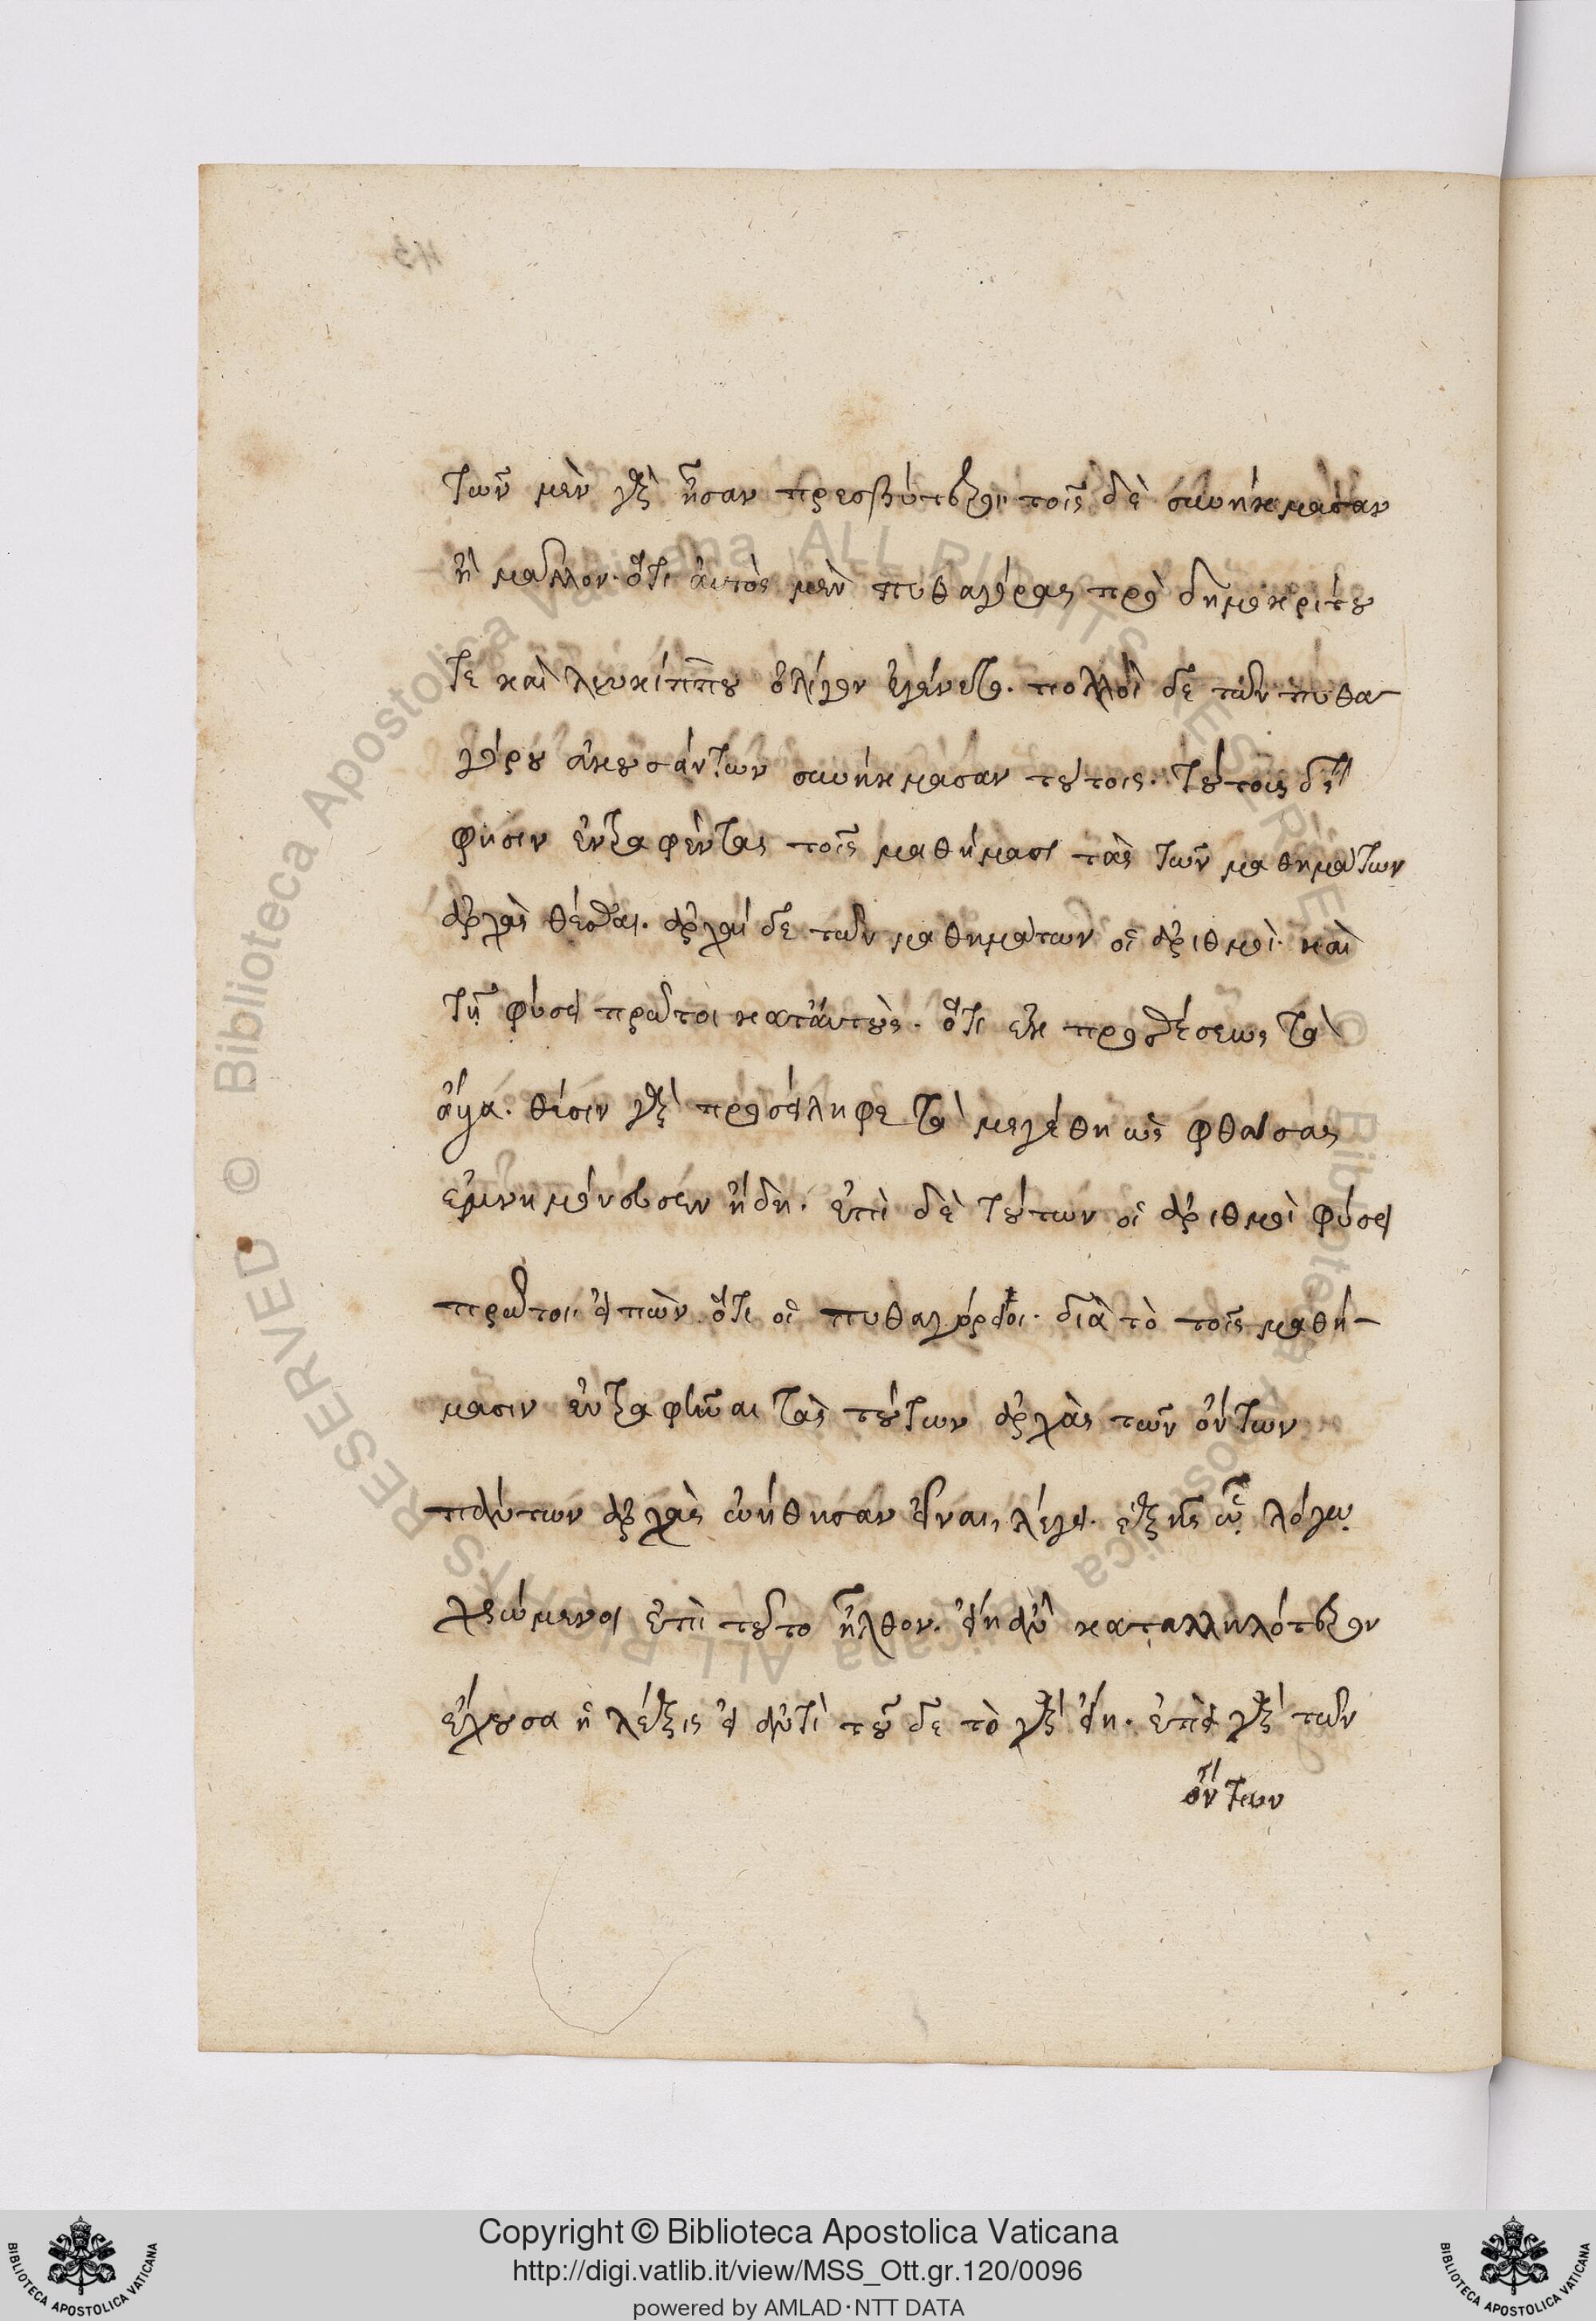 τῶν μὲν γὰρ ἦσαν πρεσβύτεροι· τοῖς δὲ συνήκμασαν
ἢ μᾶλλον· ὅτι αὐτὸς μὲν πυθαγόρας πρὸ δημοκρίτου
τε καὶ λευκίππου ὀλίγον ἐγένετο. πολλοὶ δὲ τῶν πυθα-
γόρου ἀκουσάντων συνήκμασαν τούτοις. τούτους δέ
φησιν ἐντραφέντας τοῖς μαθήμασι τὰς τῶν μαθημάτων
ἀρχὰς θέσθαι. ἀρχαὶ δὲ τῶν μαθημάτων οἱ ἀριθμοὶ. καὶ
τῇ φύσει πρῶτοι κατ' αὐτοὺς. ὅτι ἐκ προσθέσεως τὰ
ἄλλα. θέσιν γὰρ προσείληφε τὰ μεγέθη ὡς φθάσας
ἐμνημόνευσεν ἤδη. ἐπὶ δὲ τούτων οἱ ἀριθμοὶ φύσει
πρῶτοι· εἰπὼν ὅτι οἱ πυθαγόρειοι. διὰ τὸ τοῖς μαθή-
μασιν ἐντραφῆναι τὰς τούτων ἀρχὰς τῶν ὄντων
πάντων ἀρχὰς ᾠήθησαν εἶναι, λέγει. ἑξῆς ᾧ λόγῳ
χρώμενοι ἐπὶ τοῦτο ἦλθον. εἴη ἂν καταλληλότερον
ἔχουσα ἡ λέξις εἰ ἀντὶ τοῦ δὲ τὸ γὰρ εἴη. ἐπεὶ γὰρ τῶν
ὄντων
Copyright © Biblioteca Apostolica Vaticana
http://digi.vatlib.it/view/MSS_Ott.gr.120/0096
powered by AMLAD·NTT DATA
BIBLIOTECA APOSTOLICA VATICANA
BIBLIOTECA APOSTOLICA VATICANA
© Biblioteca Apostolica Vaticana ALL RIGHTS RESERVED
© Biblioteca Apostolica Vaticana ALL RIGHTS RESERVED